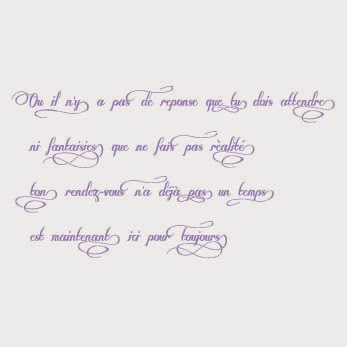 Ou il n'y a pas de reponse que tu dois attendre
ni fantaisies que ne fais pas rèalité
ton rendez-vous n'a déjà pas un temps
est maintenant ici pour toujours